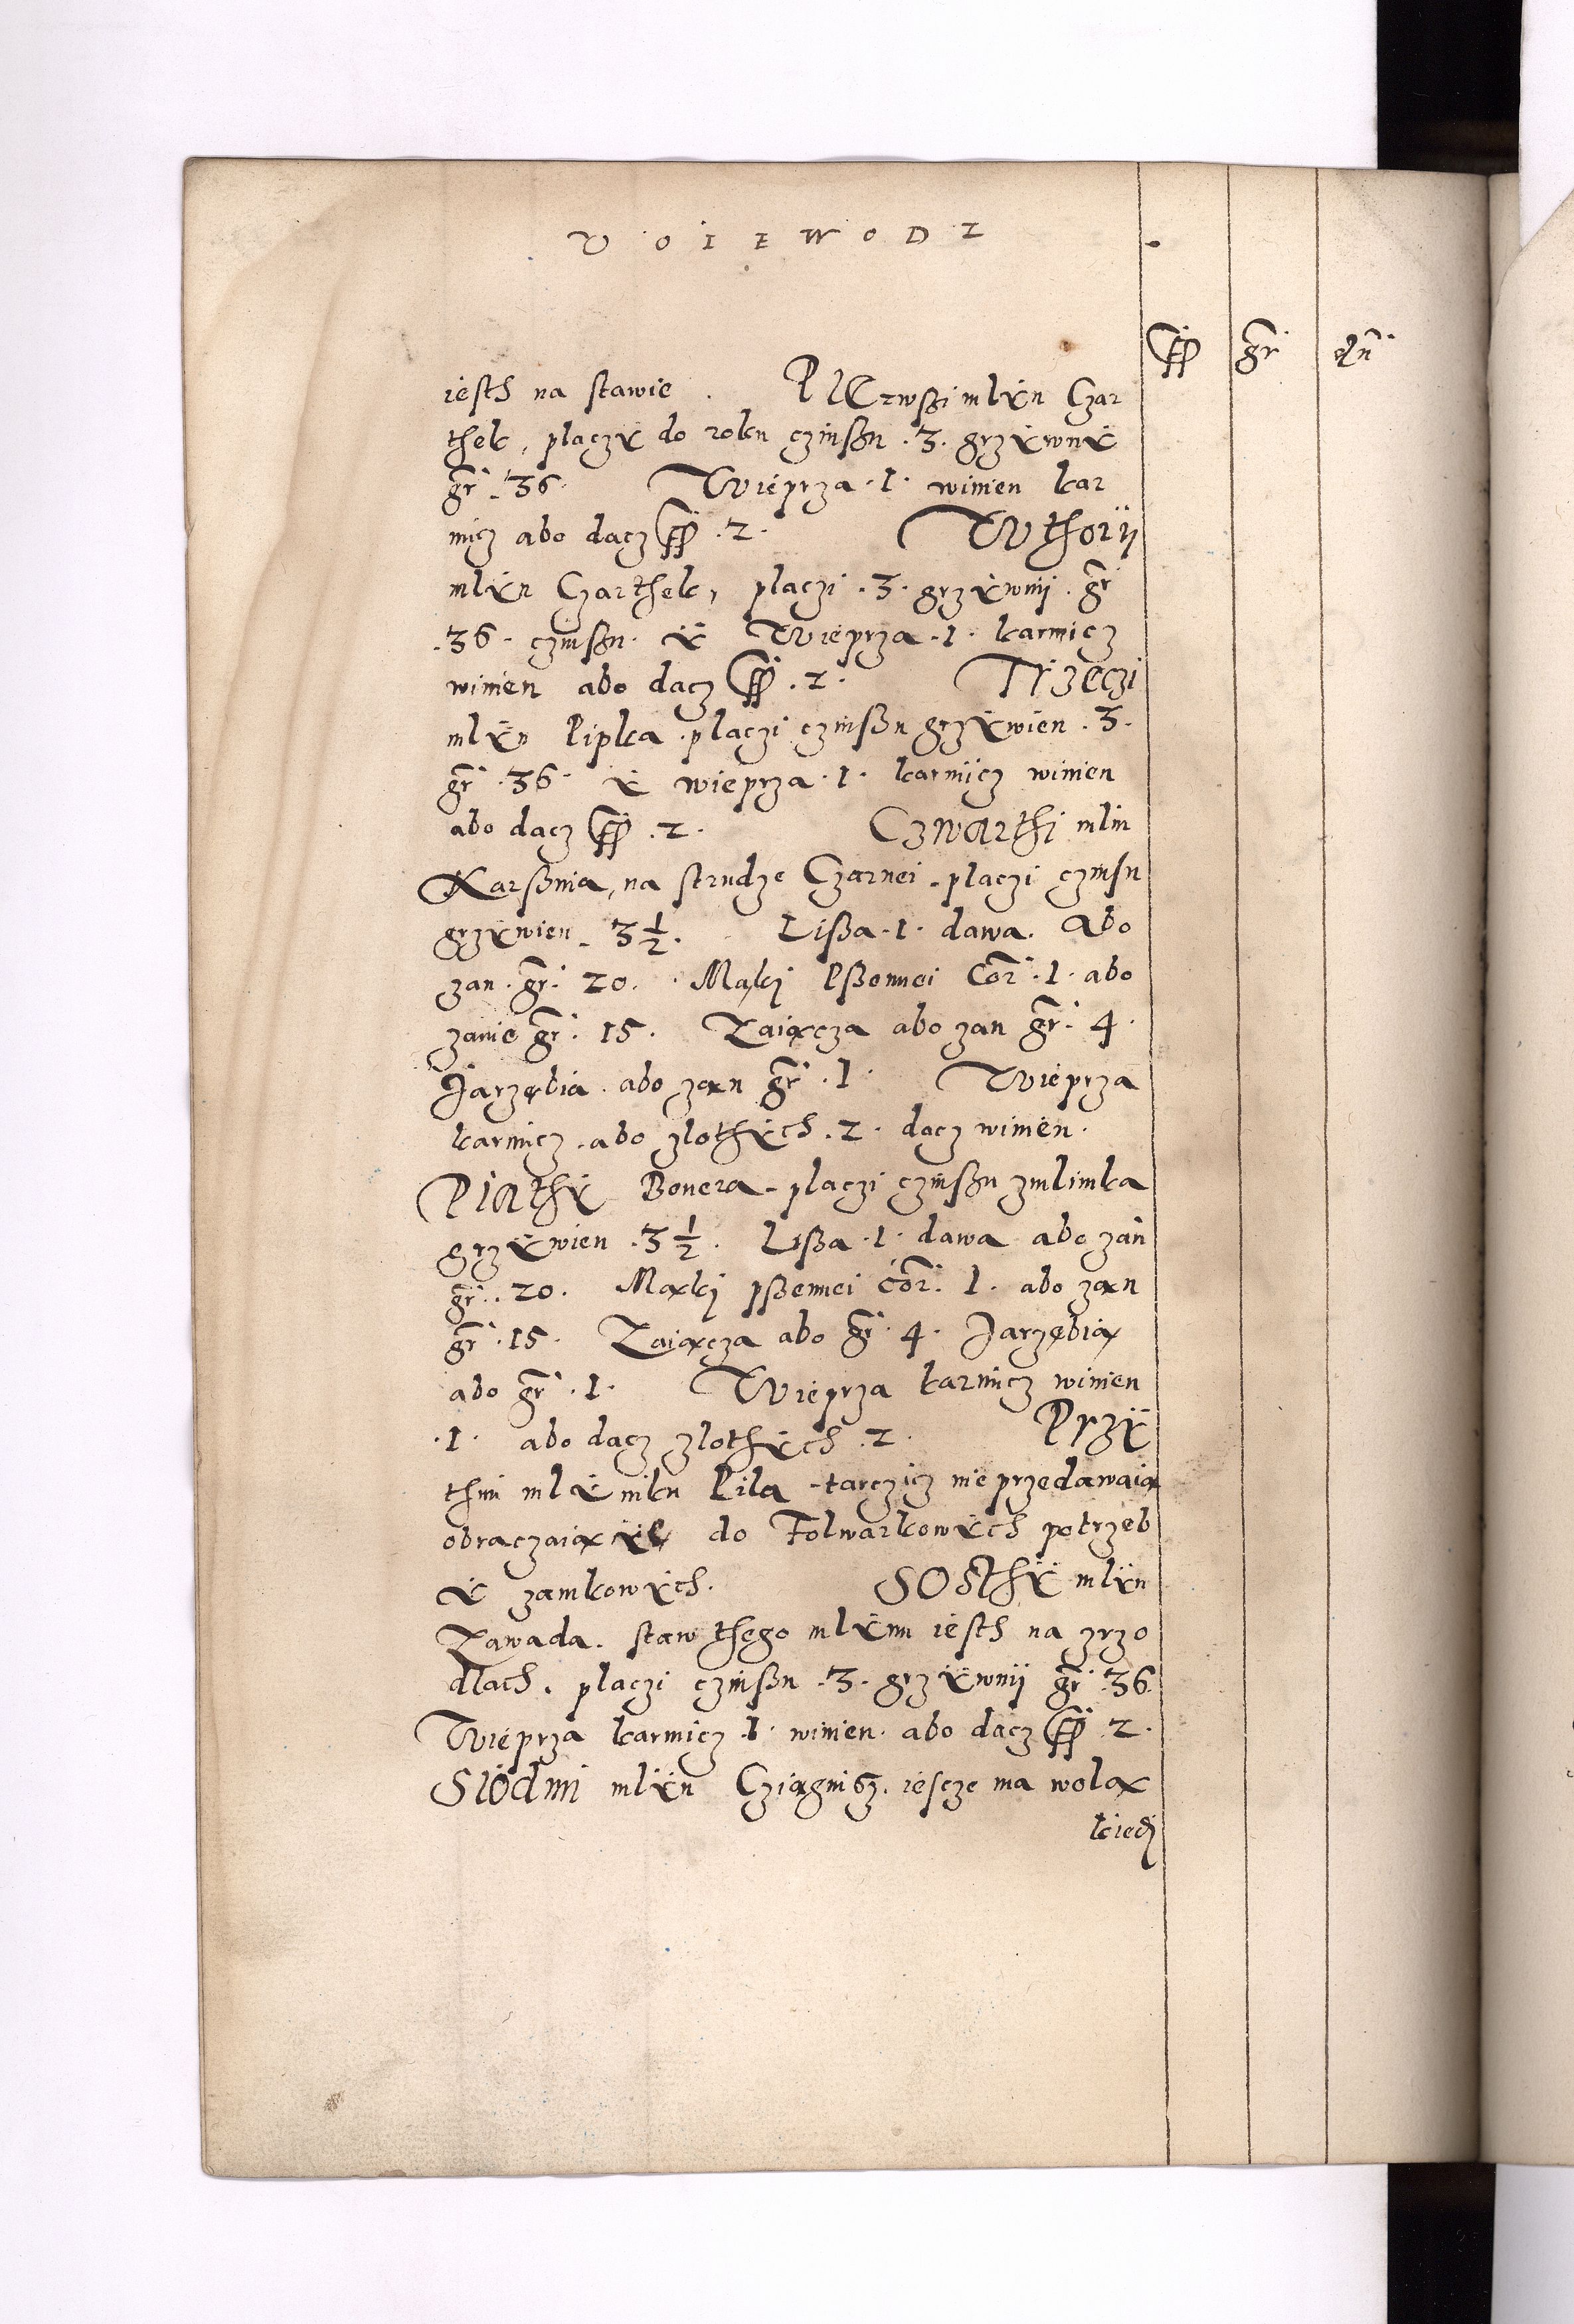 VOIEWODZ
ff gr dn
iesth na stawie . PIErwßi mlÿn Czar
thek, placzÿ do roku czinßu .3. grzÿwnÿ
gr. 36. Wieprza .1. winien kar
micz abo dacz ff .2. Wthorÿ
mlÿn Czarthek, placzi .3. grzÿwnij. gr
.36. czinßu. ÿ Wieprza .1. karmicz
winien abo dacz ff .2. Trzeczi
mlÿn Pipka. placzi czinßu grzÿwien .3.
gr .36. ÿ wieprza .1. karmicz winien
abo dacz ff .2. Czwarthi mlin
Karßnia, na strudze Czarnei. placzi czinsu
grzÿwien. 3 1/2. Lißa .1. dawa. Abo
zan. gr. 20. Mąki Pßennei Cor .1. abo
zanie gr. 15. Zaiącza abo zan gr. 4.
Jarzębia. abo zan gr .1. Wieprza
karmicz. abo zlothÿch .2. dacz winien.
Piąthÿ Bonera. placzi czinßu zmlinka
grzÿwien .3 1/2. Lißa .1. dawa abo zan
gr. 20. Mąki pßennei Cor. 1. abo zan
gr .15. Zaiącza abo gr .4. Jarzębią
abo gr .1. Wieprza karmicz winien
.1. abo dacz zlothÿch .2. Przÿ
thim mlÿnku Pila. tarczicz nie przedawaią
obraczaią ÿe do Folwarkowÿch potrzeb
ÿ zamkowÿch. SOSthÿ mlÿn
Zawada. staw thego mlÿnu iesth na zrzo
dlach. placzi czinßu .3. grzÿwnij gr .36
Wieprza karmicz .1. winien. abo dacz ff .2.
Siódmi mlÿn Cziągnisz. iescze ma wolą
kiedi